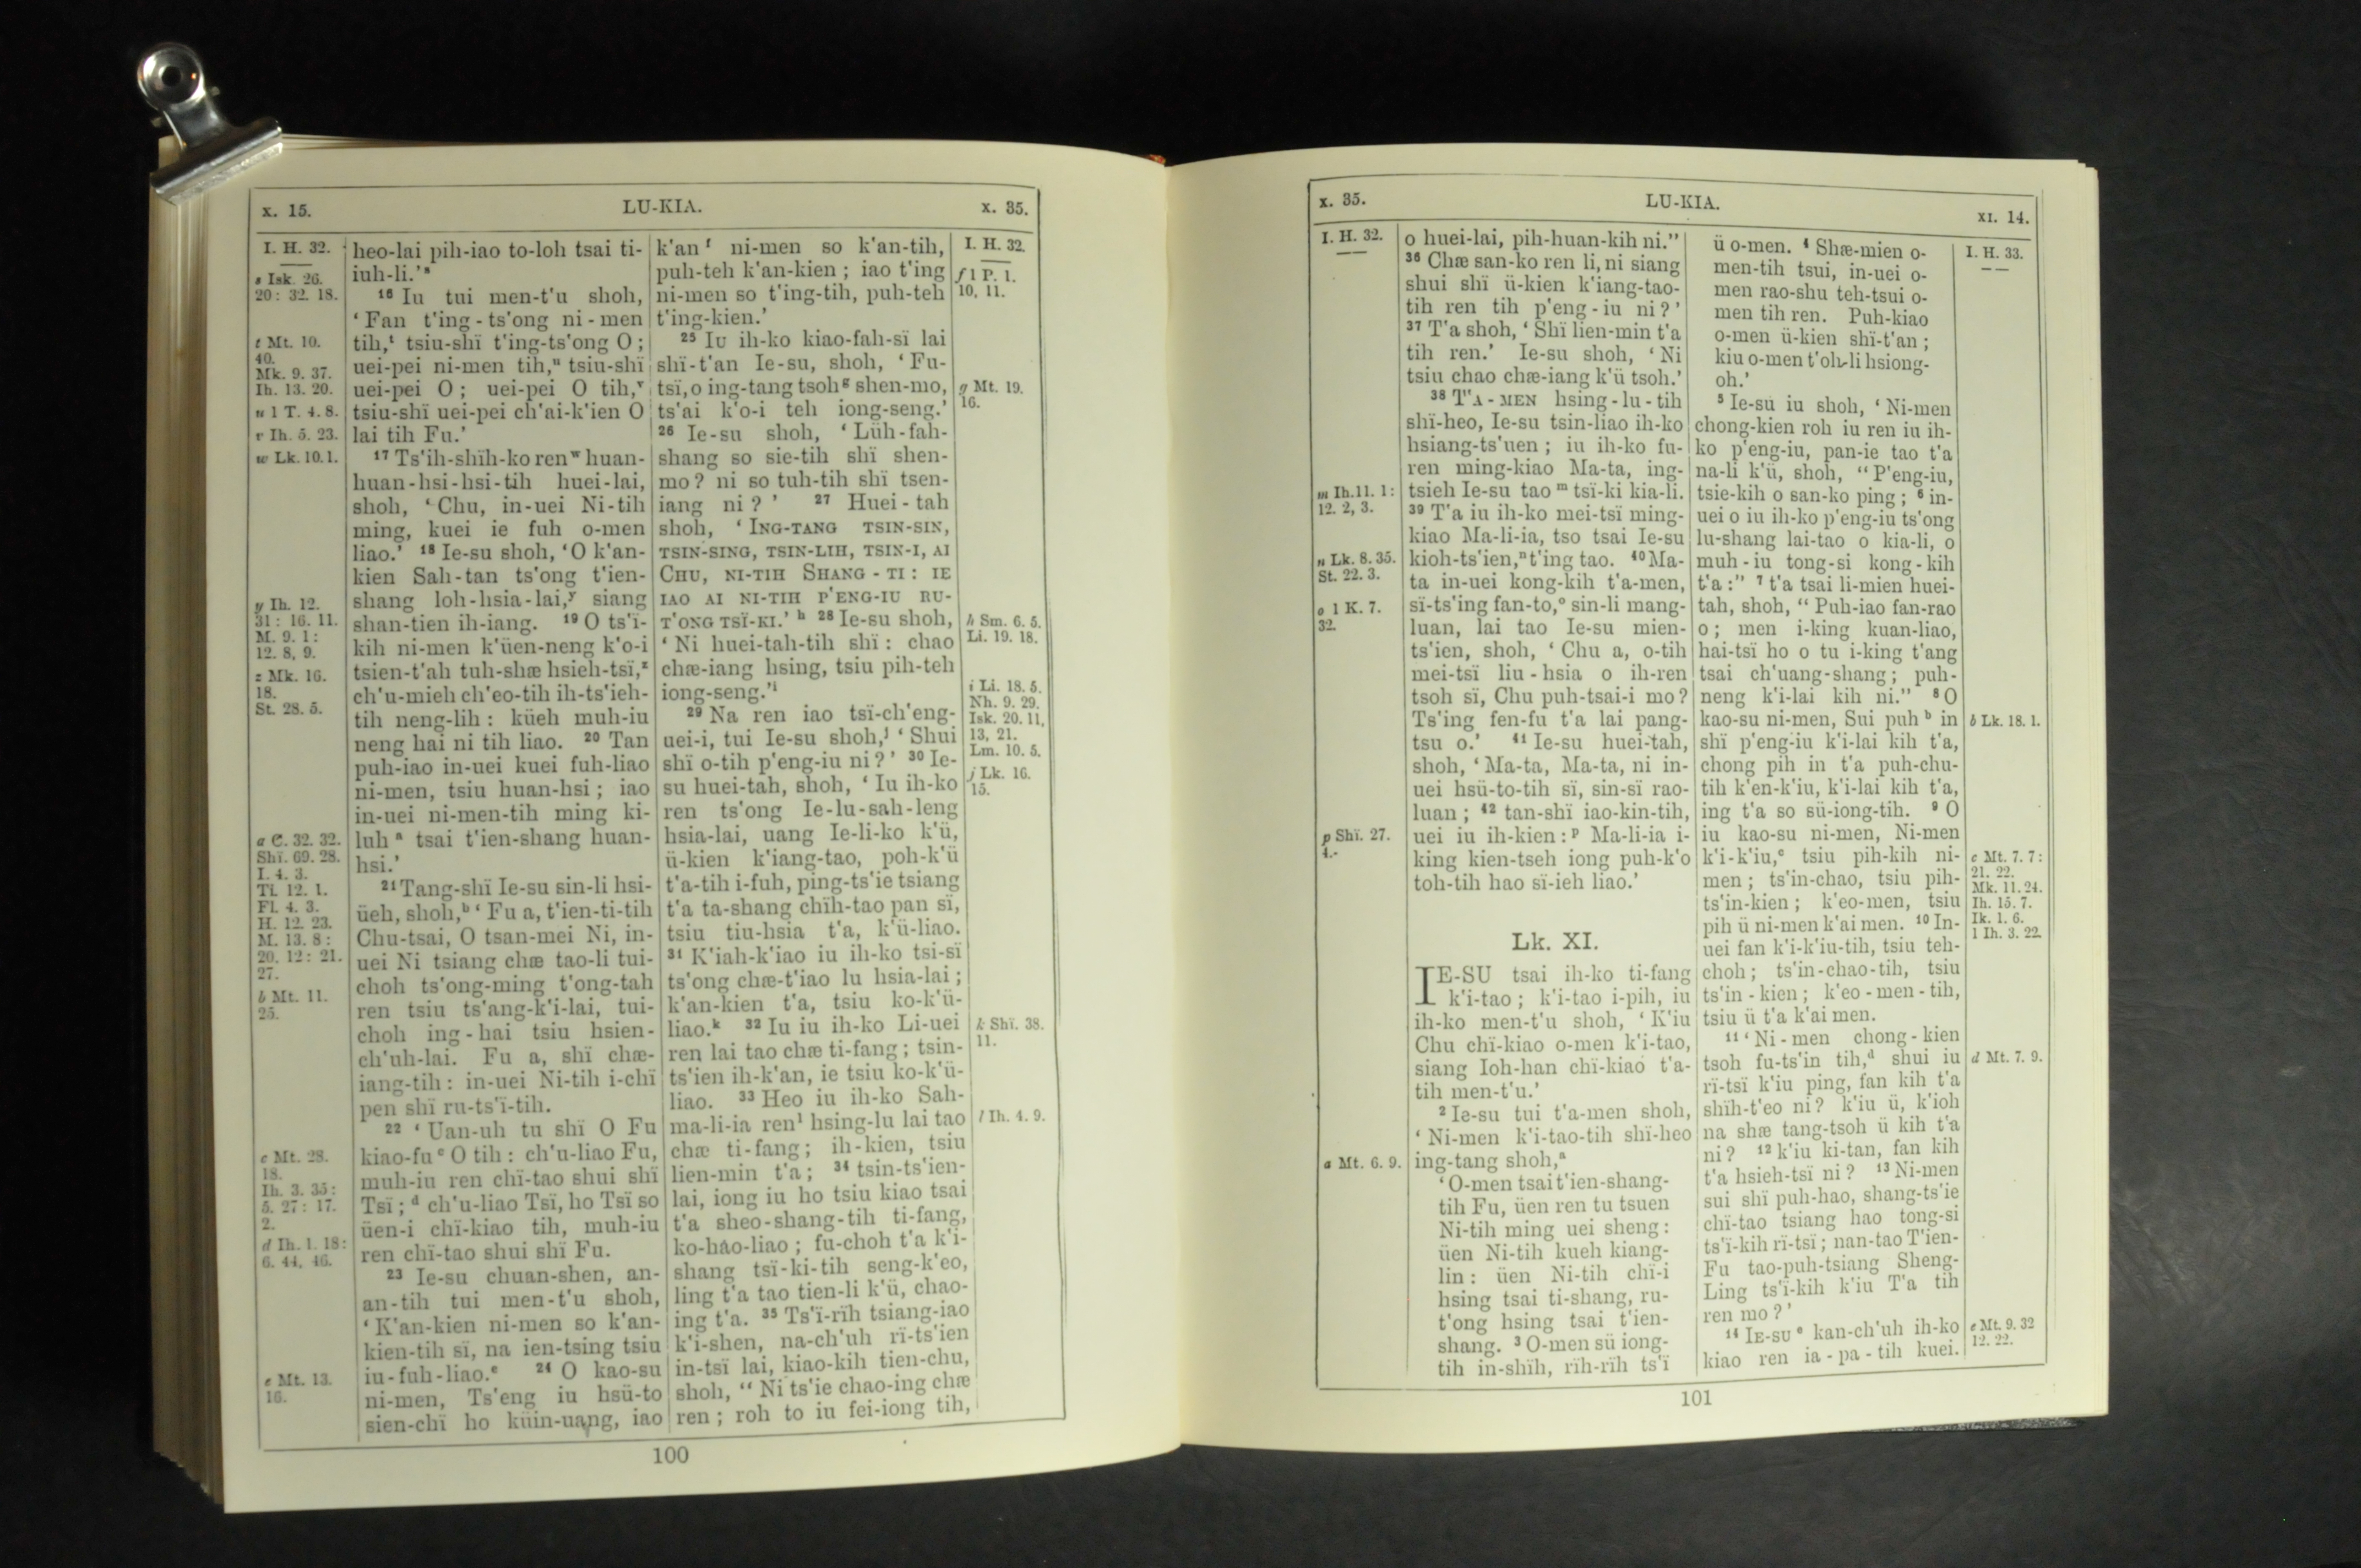 x. 15.
LU-KIA.
x. 35.
I. H. 32.
s Isk. 26.
20 : 32. 18.
t Mt. 10.
40.
Mk. 9. 37.
Ih. 13. 20.
u 1 T. 4. 8.
v Ih. 5. 23.
w Lk. 10. 1.
y Ih. 12.
31 : 16. 11.
M. 9. 1 :
12. 8, 9.
z Mk. 16.
18.
St. 28. 5.
a C. 32. 32.
Shï. 69. 28.
I. 4. 3.
Ti. 12. 1.
Fl. 4. 3.
H. 12. 23.
M. 13. 8 :
20. 12 : 21.
27.
b Mt. 11.
25.
c Mt. 28.
18.
Ih. 3. 35 :
5. 27 : 17.
2.
d Ih. 1. 18 :
6. 44, 46.
e Mt. 13.
16.
heo-lai pih-iao to-loh tsai ti-
iuh-li.’ˢ
¹⁶ Iu tui men-t‘u shoh,
‘ Fan t‘ing-ts‘ong ni-men
tih,ᵗ tsiu-shï t‘ing-ts‘ong O ;
uei-pei ni-men tih,ᵘ tsiu-shï
uei-pei O ; uei-pei O tih,ᵛ
tsiu-shï uei-pei ch‘ai-k‘ien O
lai tih Fu.’
¹⁷ Ts‘ih-shïh-ko renʷ huan-
huan-hsi-hsi-tih huei-lai,
shoh, ‘ Chu, in-uei Ni-tih
ming, kuei ie fuh o-men
liao.’ ¹⁸ Ie-su shoh, ‘O k‘an-
kien Sah-tan ts‘ong t‘ien-
shang loh-hsia-lai,ʸ siang
shan-tien ih-iang. ¹⁹ O ts‘ï-
kih ni-men k‘üen-neng k‘o-i
tsien-t‘ah tuh-shæ hsieh-tsï,ᶻ
ch‘u-mieh ch‘eo-tih ih-ts‘ieh-
tih neng-lih : küeh muh-iu
neng hai ni tih liao. ²⁰ Tan
puh-iao in-uei kuei fuh-liao
ni-men, tsiu huan-hsi ; iao
in-uei ni-men-tih ming ki-
luhᵃ tsai t‘ien-shang huan-
hsi.’
²¹ Tang-shï Ie-su sin-li hsi-
üeh, shoh,ᵇ ‘ Fu a, t‘ien-ti-tih
Chu-tsai, O tsan-mei Ni, in-
uei Ni tsiang chæ tao-li tui-
choh ts‘ong-ming t‘ong-tah
ren tsiu ts‘ang-k‘i-lai, tui-
choh ing-hai tsiu hsien-
ch‘uh-lai. Fu a, shï chæ-
iang-tih : in-uei Ni-tih i-chï
pen shï ru-ts‘ï-tih.
²² ‘ Uan-uh tu shï O Fu
kiao-fuᶜ O tih : ch‘u-liao Fu,
muh-iu ren chï-tao shui shï
Tsï ;ᵈ ch‘u-liao Tsï, ho Tsï so
üen-i chï-kiao tih, muh-iu
ren chï-tao shui shï Fu.
²³ Ie-su chuan-shen, an-
an-tih tui men-t‘u shoh,
‘ K‘an-kien ni-men so k‘an-
kien-tih sï, na ien-tsing tsiu
iu-fuh-liao.ᵉ ²⁴ O kao-su
ni-men, Ts‘eng iu hsü-to
sien-chï ho küin-uang, iao
k‘anᶠ ni-men so k‘an-tih,
puh-teh k‘an-kien ; iao t‘ing
ni-men so t‘ing-tih, puh-teh
t‘ing-kien.’
²⁵ IU ih-ko kiao-fah-sï lai
shï-t‘an Ie-su, shoh, ‘ Fu-
tsï, o ing-tang tsohᵍ shen-mo,
ts‘ai k‘o-i teh iong-seng.’
²⁶ Ie-su shoh, ‘ Lüh-fah-
shang so sie-tih shï shen-
mo ? ni so tuh-tih shï tsen-
iang ni ? ’ ²⁷ Huei-tah
shoh, ‘ ING-TANG TSIN-SIN,
TSIN-SING, TSIN-LIH, TSIN-I, AI
CHU, NI-TIH SHANG-TI : IE
IAO AI NI-TIH P‘ENG-IU RU-
T‘ONG TSÏ-KI.’ ʰ ²⁸ Ie-su shoh,
‘ Ni huei-tah-tih shï : chao
chæ-iang hsing, tsiu pih-teh
iong-seng.’ⁱ
²⁹ Na ren iao tsï-ch‘eng-
uei-i, tui Ie-su shoh,ʲ ‘ Shui
shï o-tih p‘eng-iu ni ? ’ ³⁰ Ie-
su huei-tah, shoh, ‘ Iu ih-ko
ren ts‘ong Ie-lu-sah-leng
hsia-lai, uang Ie-li-ko k‘ü,
ü-kien k‘iang-tao, poh-k‘ü
t‘a-tih i-fuh, ping-ts‘ie tsiang
t‘a ta-shang chïh-tao pan sï,
tsiu tiu-hsia t‘a, k‘ü-liao.
³¹ K‘iah-k‘iao iu ih-ko tsi-sï
ts‘ong chæ-t‘iao lu hsia-lai ;
k‘an-kien t‘a, tsiu ko-k‘ü-
liao.ᵏ ³² Iu iu ih-ko Li-uei
ren lai tao chæ ti-fang ; tsin-
ts‘ien ih-k‘an, ie tsiu ko-k‘ü-
liao. ³³ Heo iu ih-ko Sah-
ma-li-ia renˡ hsing-lu lai tao
chæ ti-fang ; ih-kien, tsiu
lien-min t‘a ; ³⁴ tsin-ts‘ien-
lai, iong iu ho tsiu kiao tsai
t‘a sheo-shang-tih ti-fang,
ko-hao-liao ; fu-choh t‘a k‘i-
shang tsï-ki-tih seng-k‘eo,
ling t‘a tao tien-li k‘ü, chao-
ing t‘a. ³⁵ Ts‘ï-rïh tsiang-iao
k‘i-shen, na-ch‘uh rï-ts‘ien
in-tsï lai, kiao-kih tien-chu,
shoh, “ Ni ts‘ie chao-ing chæ
ren ; roh to iu fei-iong tih,
I. H. 32.
f 1 P. 1.
10, 11.
g Mt. 19.
16.
h Sm. 6. 5.
Li. 19. 18.
i Li. 18. 5.
Nh. 9. 29.
Isk. 20. 11,
13, 21.
Lm. 10. 5.
j Lk. 16.
15.
k Shï. 38.
11.
l Ih. 4. 9.
100
x. 35.
LU-KIA.
XI. 14.
I. H. 32.
m Ih. 11. 1 :
12. 2, 3.
n Lk. 8. 35.
St. 22. 3.
o 1 K. 7.
32.
p Shï. 27.
4.
a Mt. 6. 9.
o huei-lai, pih-huan-kih ni.”
³⁶ Chæ san-ko ren li, ni siang
shui shï ü-kien k‘iang-tao-
tih ren tih p‘eng-iu ni ? ’
³⁷ T‘a shoh, ‘ Shï lien-min t‘a
tih ren.’ Ie-su shoh, ‘ Ni
tsiu chao chæ-iang k‘ü tsoh.’
³⁸ T‘A-MEN hsing-lu-tih
shï-heo, Ie-su tsin-liao ih-ko
hsiang-ts‘uen ; iu ih-ko fu-
ren ming-kiao Ma-ta, ing-
tsieh Ie-su taoᵐ tsï-ki kia-li.
³⁹ T‘a iu ih-ko mei-tsï ming-
kiao Ma-li-ia, tso tsai Ie-su
kioh-ts‘ien,ⁿ t‘ing tao. ⁴⁰ Ma-
ta in-uei kong-kih t‘a-men,
sï-ts‘ing fan-to,ᵒ sin-li mang-
luan, lai tao Ie-su mien-
ts‘ien, shoh, ‘ Chu a, o-tih
mei-tsï liu-hsia o ih-ren
tsoh sï, Chu puh-tsai-i mo ?
Ts‘ing fen-fu t‘a lai pang-
tsu o.’ ⁴¹ Ie-su huei-tah,
shoh, ‘ Ma-ta, Ma-ta, ni in-
uei hsü-to-tih sï, sin-sï rao-
luan ; ⁴² tan-shï iao-kin-tih,
uei iu ih-kien :ᵖ Ma-li-ia i-
king kien-tseh iong puh-k‘o
toh-tih hao sï-ieh liao.’
Lk. XI.
IE-SU tsai ih-ko ti-fang
k‘i-tao ; k‘i-tao i-pih, iu
ih-ko men-t‘u shoh, ‘ K‘iu
Chu chï-kiao o-men k‘i-tao,
siang Ioh-han chï-kiao t‘a-
tih men-t‘u.’
² Ie-su tui t‘a-men shoh,
‘ Ni-men k‘i-tao-tih shï-heo
ing-tang shoh,ᵃ
‘ O-men tsai t‘ien-shang-
tih Fu, üen ren tu tsuen
Ni-tih ming uei sheng :
üen Ni-tih kueh kiang-
lin : üen Ni-tih chï-i
hsing tsai ti-shang, ru-
t‘ong hsing tsai t‘ien-
shang. ³ O-men sü iong-
tih in-shïh, rïh-rïh ts‘ï
ü o-men. ⁴ Shæ-mien o-
men-tih tsui, in-uei o-
men rao-shu teh-tsui o-
men tih ren. Puh-kiao
o-men ü-kien shï-t‘an ;
kiu o-men t‘oh-li hsiong-
oh.’
⁵ Ie-su iu shoh, ‘ Ni-men
chong-kien roh iu ren iu ih-
ko p‘eng-iu, pan-ie tao t‘a
na-li k‘ü, shoh, “ P‘eng-iu,
tsie-kih o san-ko ping ; ⁶ in-
uei o iu ih-ko p‘eng-iu ts‘ong
lu-shang lai-tao o kia-li, o
muh-iu tong-si kong-kih
t‘a :” ⁷ t‘a tsai li-mien huei-
tah, shoh, “ Puh-iao fan-rao
o ; men i-king kuan-liao,
hai-tsï ho o tu i-king t‘ang
tsai ch‘uang-shang ; puh-
neng k‘i-lai kih ni.” ⁸ O
kao-su ni-men, Sui puhᵇ in
shï p‘eng-iu k‘i-lai kih t‘a,
chong pih in t‘a puh-chu-
tih k‘en-k‘iu, k‘i-lai kih t‘a,
ing t‘a so sü-iong-tih. ⁹ O
iu kao-su ni-men, Ni-men
k‘i-k‘iu,ᶜ tsiu pih-kih ni-
men ; ts‘in-chao, tsiu pih-
ts‘in-kien ; k‘eo-men, tsiu
pih ü ni-men k‘ai men. ¹⁰ In-
uei fan k‘i-k‘iu-tih, tsiu teh-
choh ; ts‘in-chao-tih, tsiu
ts‘in-kien ; k‘eo-men-tih,
tsiu ü t‘a k‘ai men.
¹¹ ‘ Ni-men chong-kien
tsoh fu-ts‘in tih,ᵈ shui iu
rï-tsï k‘iu ping, fan kih t‘a
shïh-t‘eo ni ? k‘iu ü, k‘ioh
na shæ tang-tsoh ü kih t‘a
ni ? ¹² k‘iu ki-tan, fan kih
t‘a hsieh-tsï ni ? ¹³ Ni-men
sui shï puh-hao, shang-ts‘ie
chï-tao tsiang hao tong-si
ts‘ï-kih rï-tsï ; nan-tao T‘ien-
Fu tao-puh-tsiang Sheng-
Ling ts‘ï-kih k‘iu T‘a tih
ren mo ? ’
¹⁴ IE-SUᵉ kan-ch‘uh ih-ko
kiao ren ia-pa-tih kuei.
I. H. 33.
b Lk. 18. 1.
c Mt. 7. 7 :
21. 22.
Mk. 11. 24.
Ih. 15. 7.
Ik. 1. 6.
1 Ih. 3. 22.
d Mt. 7. 9.
e Mt. 9. 32
12. 22.
101